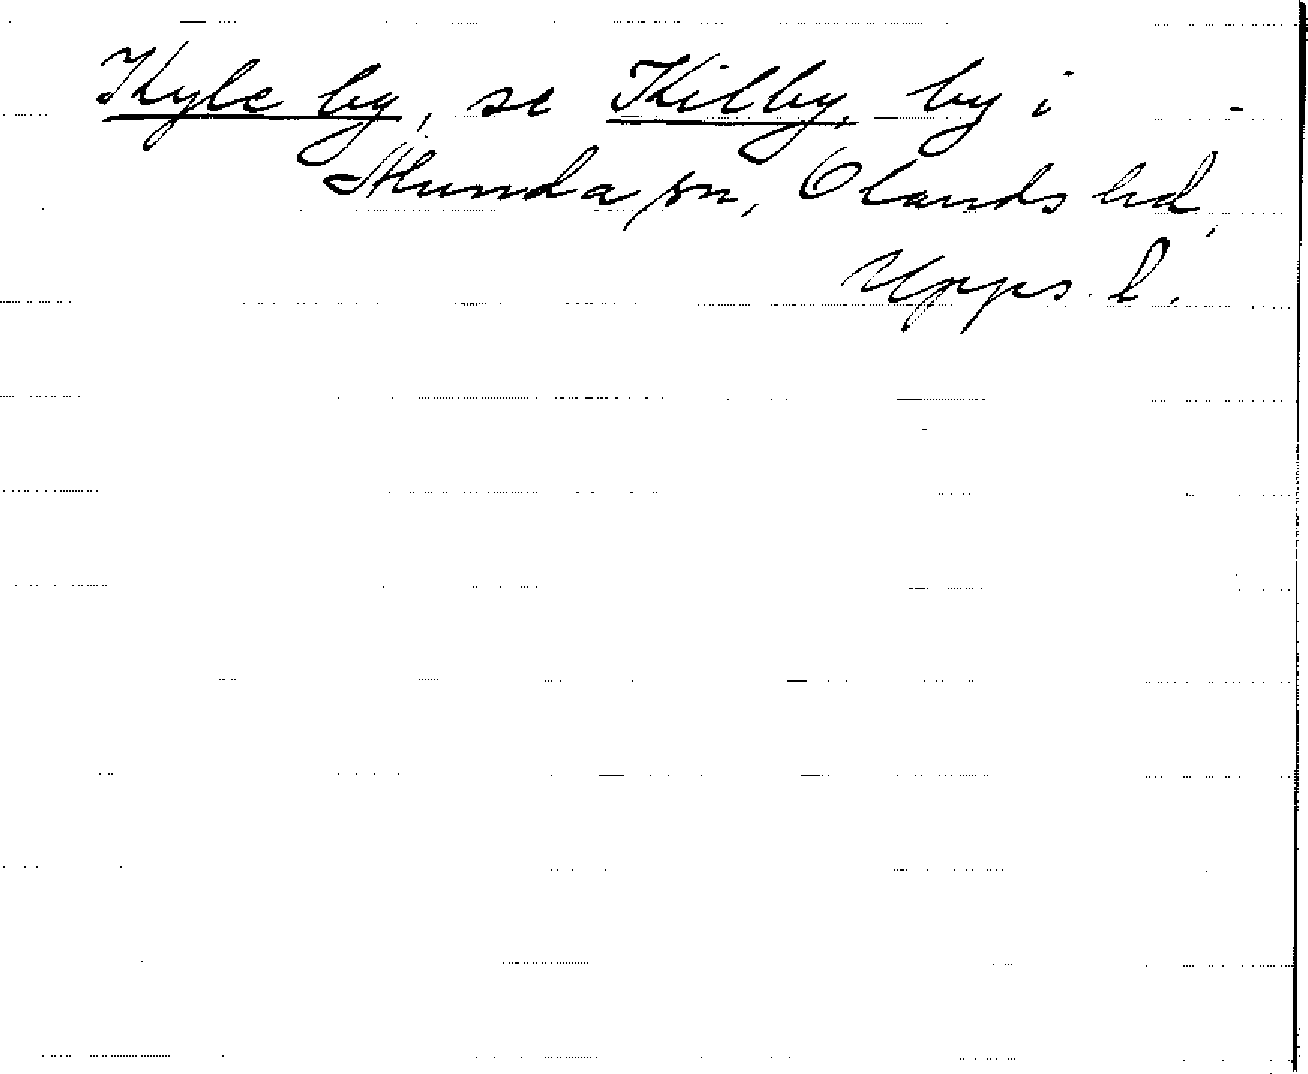 Kyle by, se Kilby, by i
Alunda sn, Olands hd,
Upps. l.